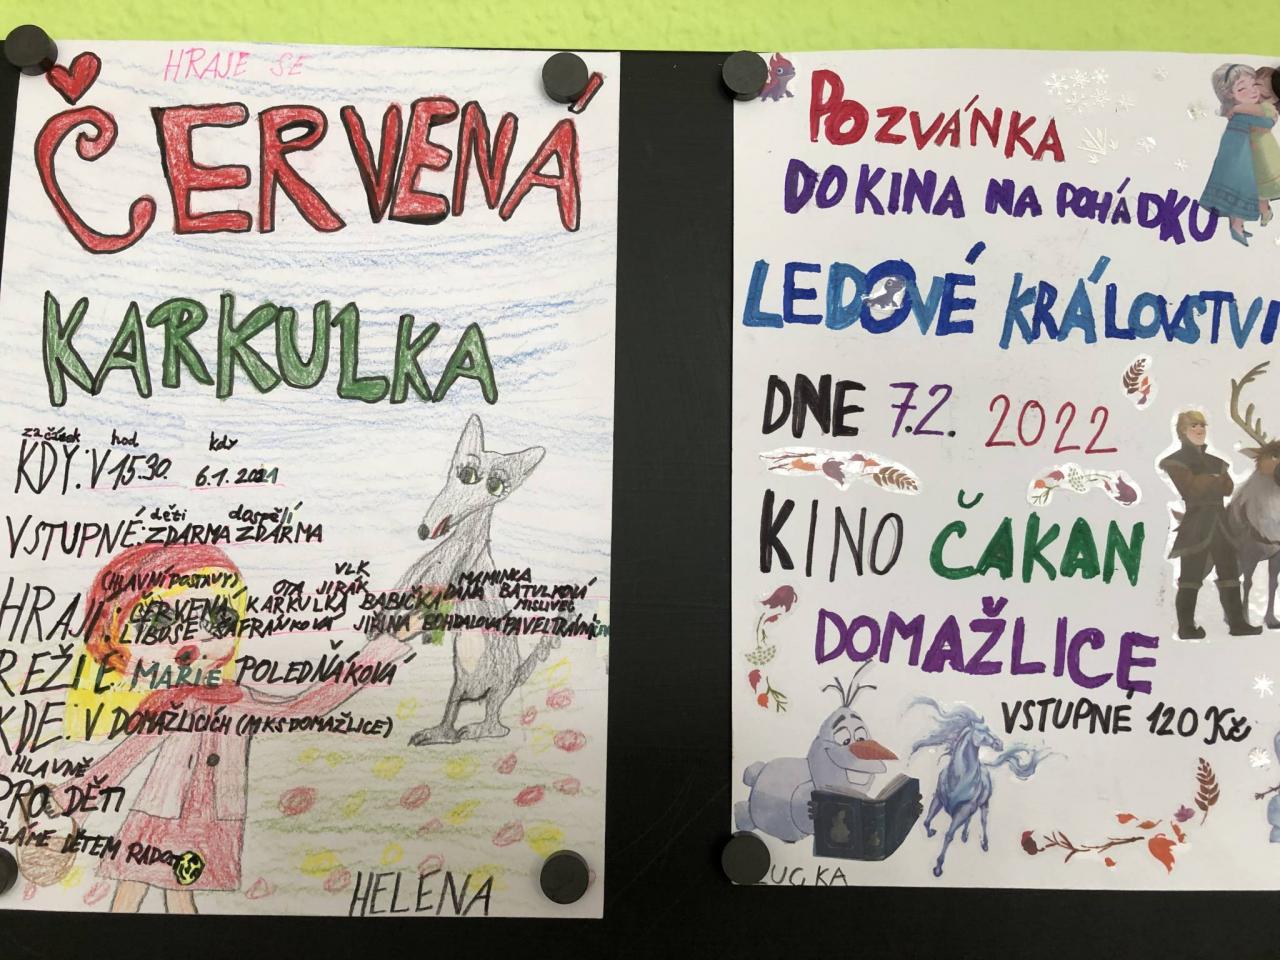 HRAJE SE
ČERVENÁ
KARKULKA
začátek hod kdy
KDY: V 15.30. 6.1. 2021
děti dospělí
VSTUPNÉ: ZDARMA ZDARMA
(HLAVNÍ POSTAVY) VLK MAMINKA
HRAJÍ: ČERVENÁ OTA JIRÁK
KARKULKA BABIČKA DANA BATULKOVÁ
MISLIVEC
LIBUŠE ŠAFRÁNKOVÁ JIŘINA BOHDALOVÁ PAVEL TRÁVNÍČEK
REŽIE MARIE POLEDŇÁKOVÁ
KDE: V DOMAŽLICÍCH (MKS DOMAŽLICE)
HLAVNĚ
PRO DĚTI
DĚLÁME DĚTEM RADOST
HELENA
POZVÁNKA
DO KINA NA POHÁDKU
LEDOVÉ KRÁLOVSTVÍ
DNE 7.2. 2022
KINO ČAKAN
DOMAŽLICE
VSTUPNÉ 120 Kč